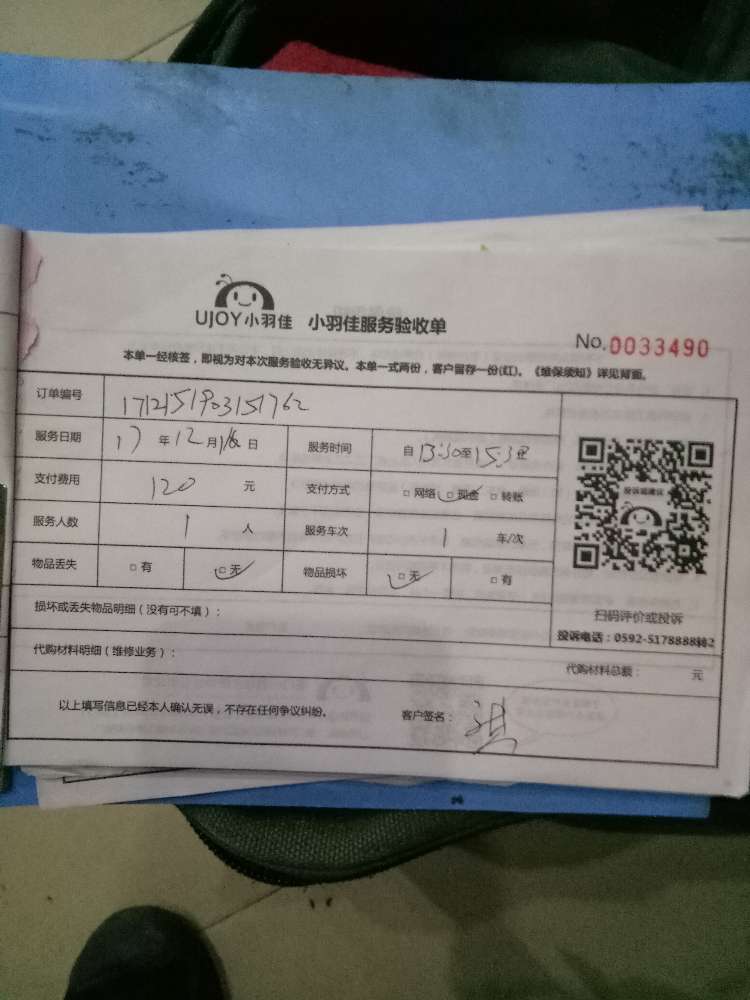 UJOY小羽佳 小羽佳服务验收单
No.0033490
本单一经核签，即视为对本次服务验收无异议。本单一式两份，客户留存一份(红)。《维保须知》详见背面。
订单编号
服务日期 17年12月 日 服务时间 自13:30至15:30
支付费用 120 元 支付方式 □网络 □现金 □转账
服务人数 1 人 服务车次 1 车/次
物品丢失 □有 □无 物品损坏 □无 □有
投诉或建议
扫码评价或投诉
投诉电话：0592-5178888转2
损坏或丢失物品明细（没有可不填）：
代购材料明细（维修业务）： 代购材料总额： 元
以上填写信息已经本人确认无误，不存在任何争议纠纷。 客户签名：